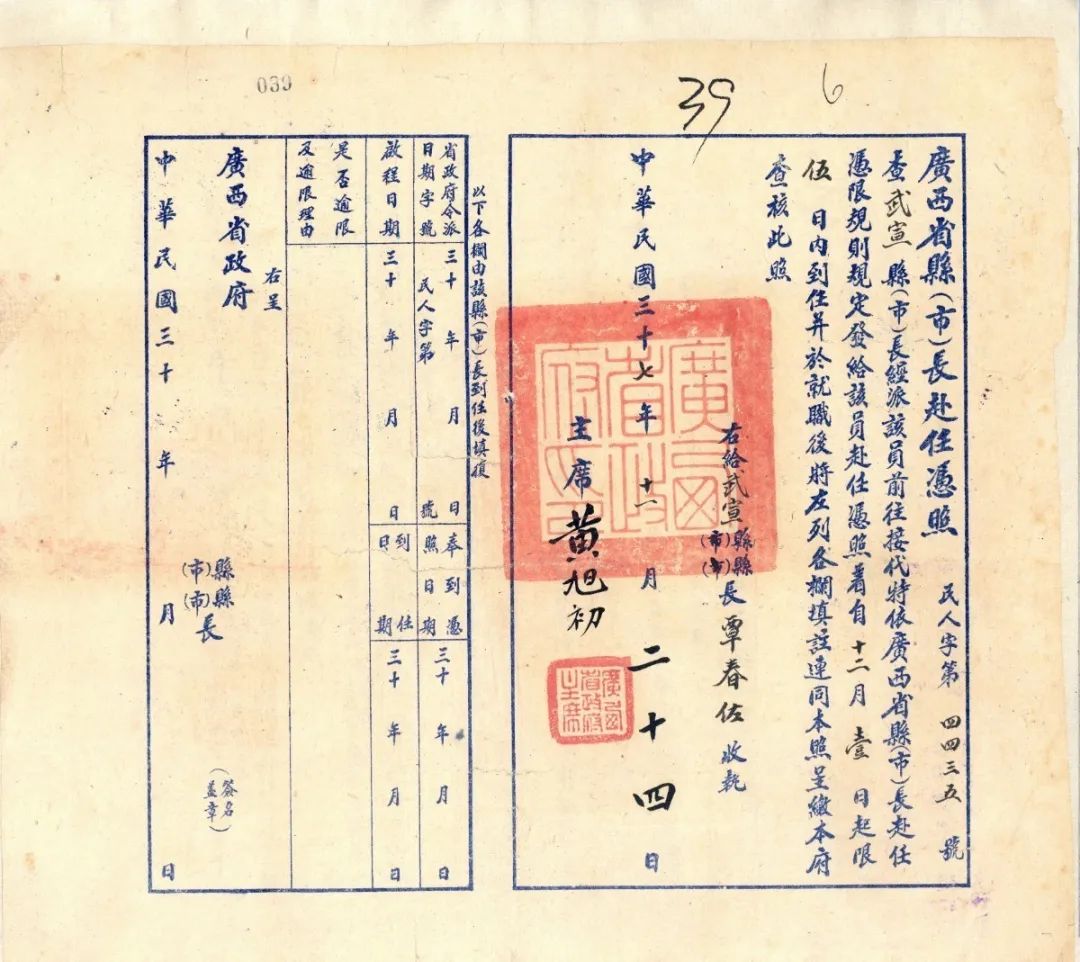 039
39
6
廣西省縣(市)長赴任憑照 民人字第 四四三五 號
查 武宣 縣(市)長經派該員前往接代特依廣西省縣(市)長赴任
憑限規則規定發給該員赴任憑照著自 十二月 壹 日起限
伍 日內到任并於就職後將左列各欄填註連同本照呈繳本府
查核此照
右給武宣縣(市)縣(市)長 覃春佐 收執
中華民國三十七年 十一 月 二十四 日
主席 黃旭初
廣西省政府主席
廣西省政府印
以下各欄由該縣(市)長到任後填復
省政府令派日期字號 三十 年 月 日 民人字第 號
奉到憑照日期 三十 年 月 日
啟程日期 三十 年 月 日
到任日期 三十 年 月 日
是否逾限及逾限理由
右呈
廣西省政府
縣(市)縣(市)長 (簽名蓋章)
中華民國三十 年 月 日